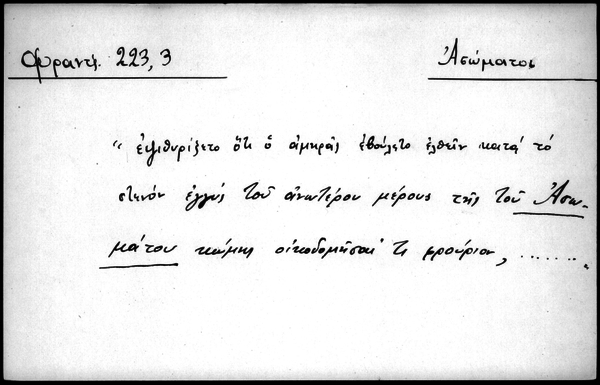 Φραντζ. 223, 3
Ἀσώματοι
“ ἐψιθυρίζετο ὅτι ὁ ἀμηρᾶς ἐβούλετο ἐλθεῖν κατὰ τὸ
στενόν ἐγγύς τοῦ ἀνωτέρου μέρους τῆς τοῦ Ἀσω-
μάτου κώμης οἰκοδομῆσαί τι φρούριον, .......